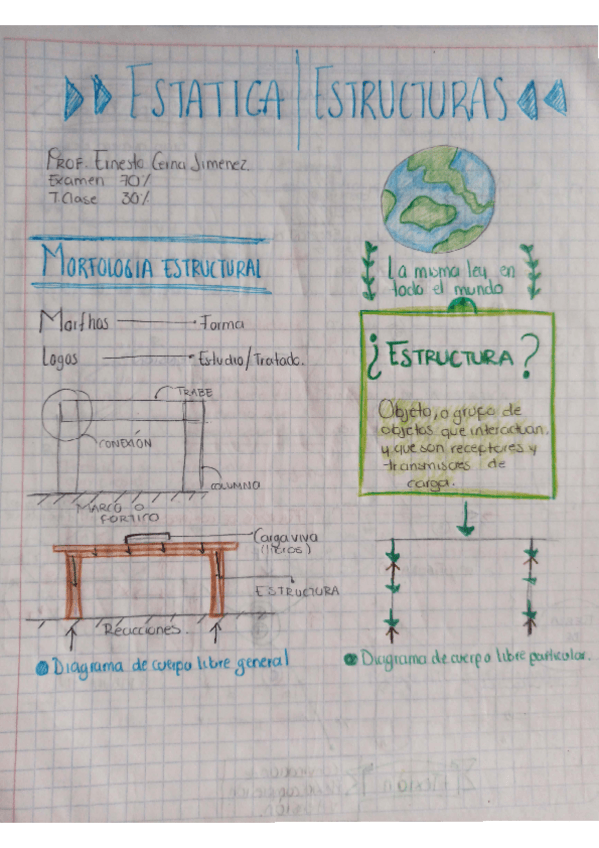 ESTATICA | ESTRUCTURAS
PROF. Ernesto Cerna Jimenez.
Examen 70%
T.Clase 30%
La misma ley en
todo el mundo
MORFOLOGIA ESTRUCTURAL
Morfhos Forma
Logos Estudio/Tratado.
¿ESTRUCTURA?
Objeto, o grupo de
objetos que interactuan,
y que son receptores y
transmisores de
carga.
TRABE
CONEXIÓN
COLUMNA
MARCO O
PORTICO
Carga viva
(libros)
ESTRUCTURA
Reacciones.
Diagrama de cuerpo libre general
Diagrama de cuerpo libre particular.